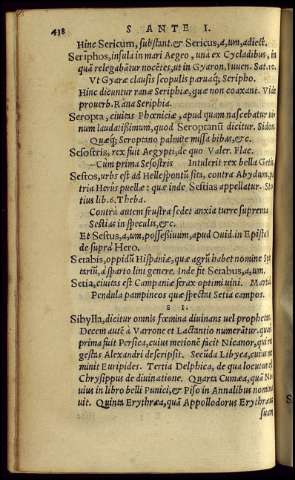 438 S ANTE I.
Hinc Sericum, substant. & Sericus, a, um, adiect.
Seriphos, insula in mari Aegeo, una ex Cycladibus, in
quã relegabãtur nocẽtes, ut in Gyaron. Iuuen. Sat. 10.
Vt Gyaræ clausis scopulis paruaq; Seripho.
Hinc dicuntur ranæ Seriphiæ, quæ non coaxant. Vide
prouerb. Rana Seriphia.
Seropta, ciuitas Phœniciæ, apud quam nascebatur ui
num laudatissimum, quod Seroptanũ dicitur. Sidon.
Quæq; Seroptano palmite missa bibas, &c.
Sesostris, rex fuit Aegypti, de quo Valer. Flac.
—Cum prima Sesostris Intulerit rex bella Getis
Sestos, urbs est ad Hellespontũ sita, contra Abydum, pa
tria Herus puellæ: quæ inde Sestias appellatur. Sta
tius lib. 6. Theba.
Contra autem frustra sedet anxia turre suprema
Sestias in speculis, &c.
Et Sestus, a, um, possessiuum, apud Ouid. in Epistol
de supra Hero.
Setabis, oppidũ Hispaniæ, quæ agrũ habet nomine Spar
tariũ, à sparto lini genere. Inde fit Setabus, a, um.
Setia, ciuitas est Campaniæ ferax optimi uini. Martia
Pendula pampineos quæ spectat Setia campos.
S I.
Sibylla, dicitur omnis fœmina diuinans uel prophetans
Decem autẽ à Varrone et Lactantio numerãtur, quarũ
prima fuit Persica, cuius metionẽ facit Nicanor, qui res
gestas Alexandri descripsit. Secũda Libyca, cuius me
minit Euripides. Tertia Delphica, de qua locutus est
Chrysippus de diuinatione. Quarta Cumæa, quã Næ
uius in libro belli Punici, & Piso in Annalibus nomina
uit. Quinta Erythræa, quã Appollodorus Erythræus
suam